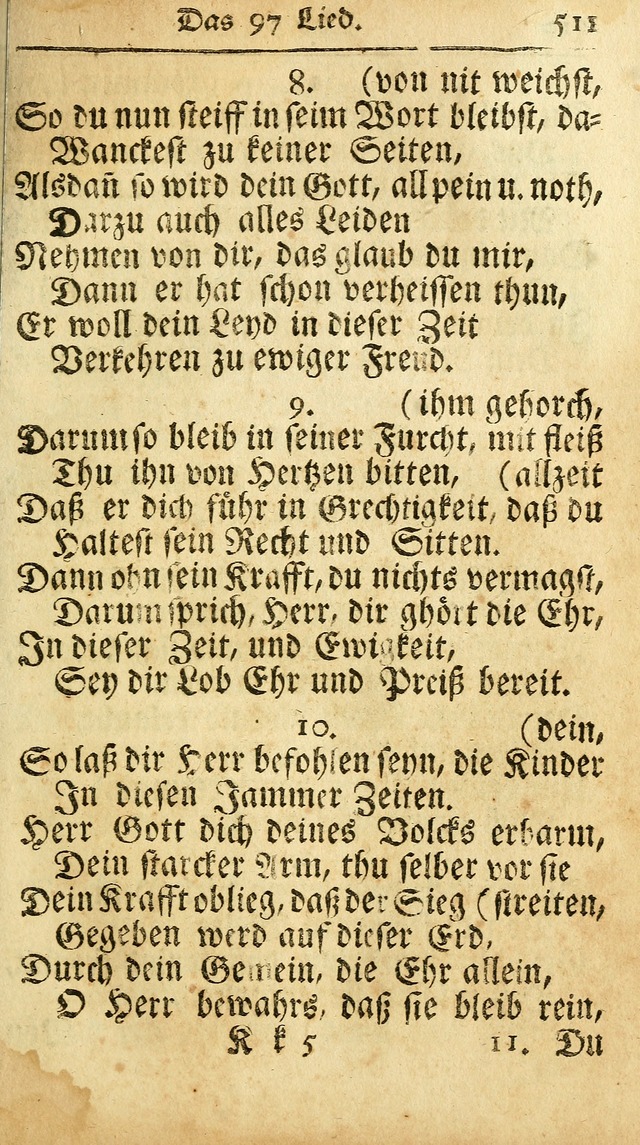 Das 97 Lied. 511
8. (von nit weichst,
So du nun steiff in seim Wort bleibst, da=
Wanckest zu keiner Seiten,
Alsdañ so wird dein Gott, all pein u. noth,
Darzu auch alles Leiden
Nehmen von dir, das glaub du mir,
Dann er hat schon verheissen thun,
Er woll dein Leyd in dieser Zeit
Verkehren zu ewiger Freud.
9. (ihm gehorch,
Darum so bleib in seiner Furcht, mit fleiß
Thu ihn von Hertzen bitten, (allzeit
Daß er dich führ in Grechtigkeit, daß du
Haltest sein Recht und Sitten.
Dann ohn sein Krafft, du nichts vermagst,
Darum sprich, Herr, dir ghört die Ehr,
In dieser Zeit, und Ewigkeit,
Sey dir Lob Ehr und Preiß bereit.
10. (dein,
So laß dir Herr befohlen seyn, die Kinder
In diesen Jammer Zeiten.
Herr Gott dich deines Volcks erbarm,
Dein starcker Arm, thu selber vor sie
Dein Krafft oblieg, daß der Sieg (streiten,
Gegeben werd auf dieser Erd,
Durch dein Gemein, die Ehr allein,
O Herr bewahrs, daß sie bleib rein,
K k 5 11. Du